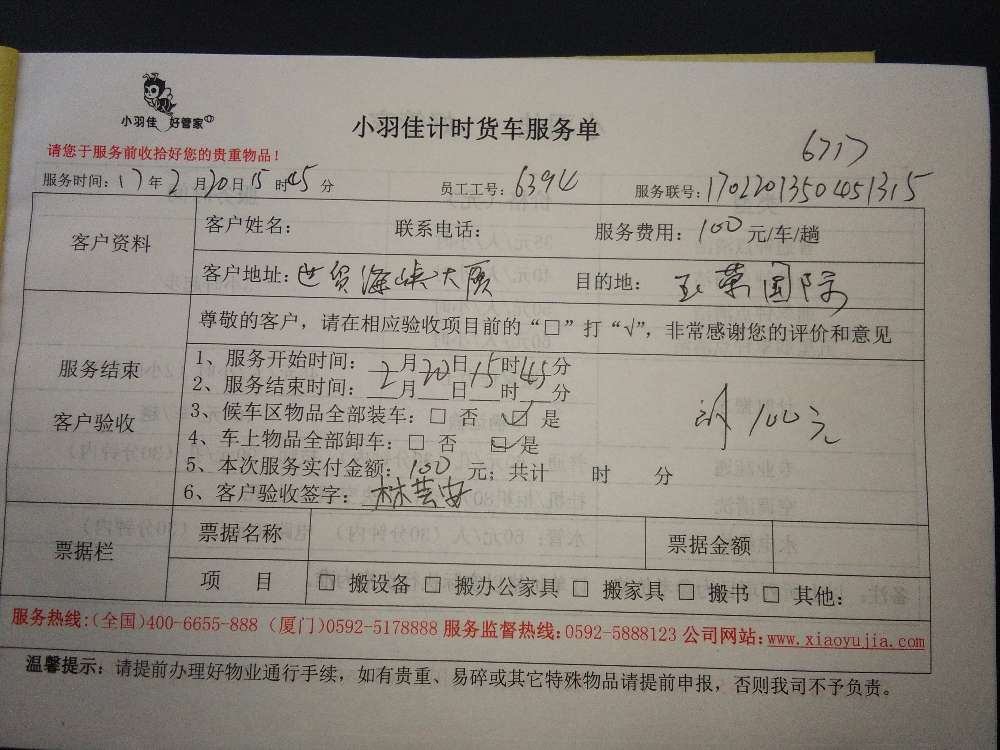 小羽佳 好管家
小羽佳计时货车服务单
6717
请您于服务前收拾好您的贵重物品！
服务时间：17年2月20日15时45分 员工工号：6394 服务联号：1702201350451315
客户资料
客户姓名： 联系电话： 服务费用：100元/车/趟
客户地址：世贸海峡大厦 目的地：玉荣国际
服务结束
客户验收
尊敬的客户，请在相应验收项目前的“□”打“√”，非常感谢您的评价和意见
1、服务开始时间：2月20日15时45分
2、服务结束时间：月 日 时 分
3、候车区物品全部装车：□ 否 ☑ 是
4、车上物品全部卸车：□ 否 ☑ 是
5、本次服务实付金额：100元；共计 时 分
100元
6、客户验收签字：林芸安
票据栏
票据名称 票据金额
项 目 □ 搬设备 □ 搬办公家具 □ 搬家具 □ 搬书 □ 其他：
服务热线:(全国)400-6655-888 (厦门)0592-5178888 服务监督热线:0592-5888123 公司网站:www.xiaoyujia.com
温馨提示：请提前办理好物业通行手续，如有贵重、易碎或其它特殊物品请提前申报，否则我司不予负责。